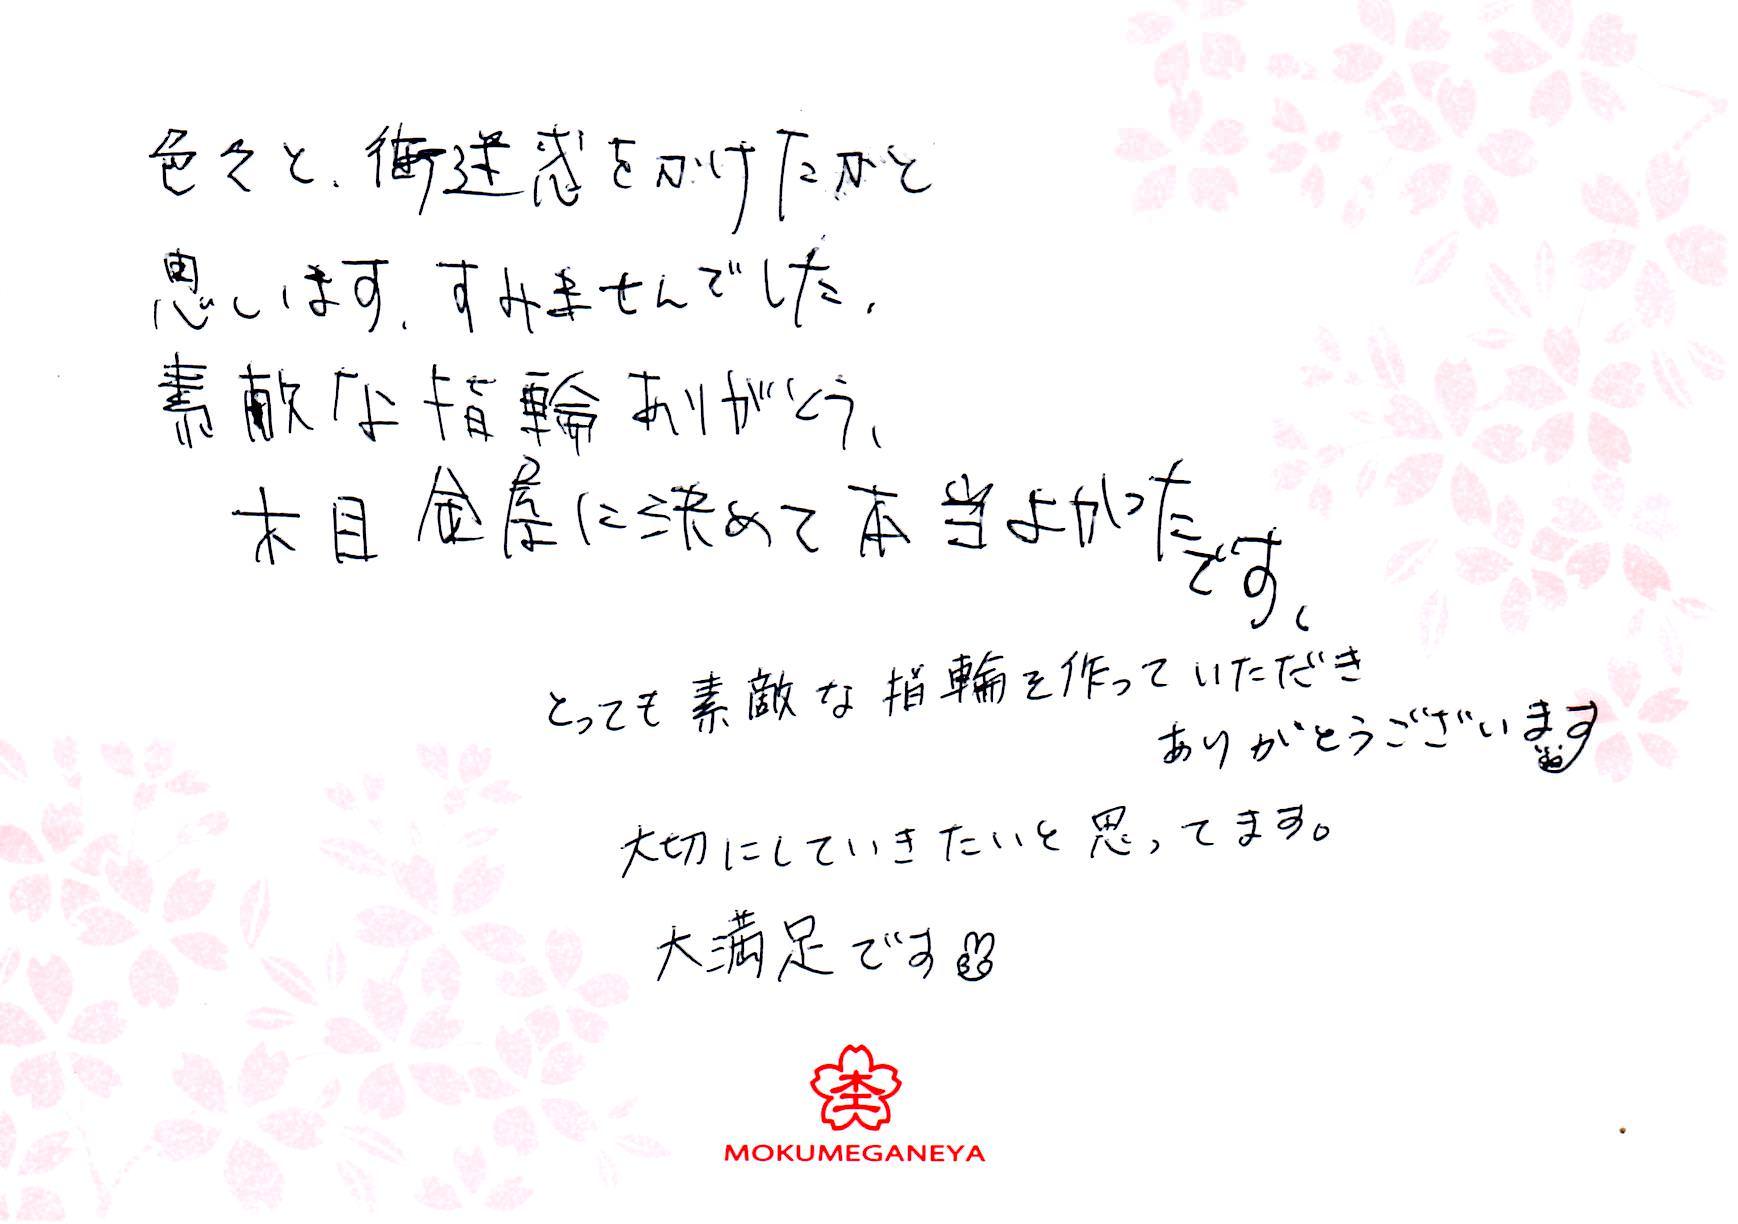 色々と、御迷惑をかけたかと
思います、すみませんでした、
素敵な指輪ありがとう、
木目金屋に決めて本当よかったです、
とっても素敵な指輪を作っていただき
ありがとうございます
大切にしていきたいと思ってます。
大満足です
MOKUMEGANEYA